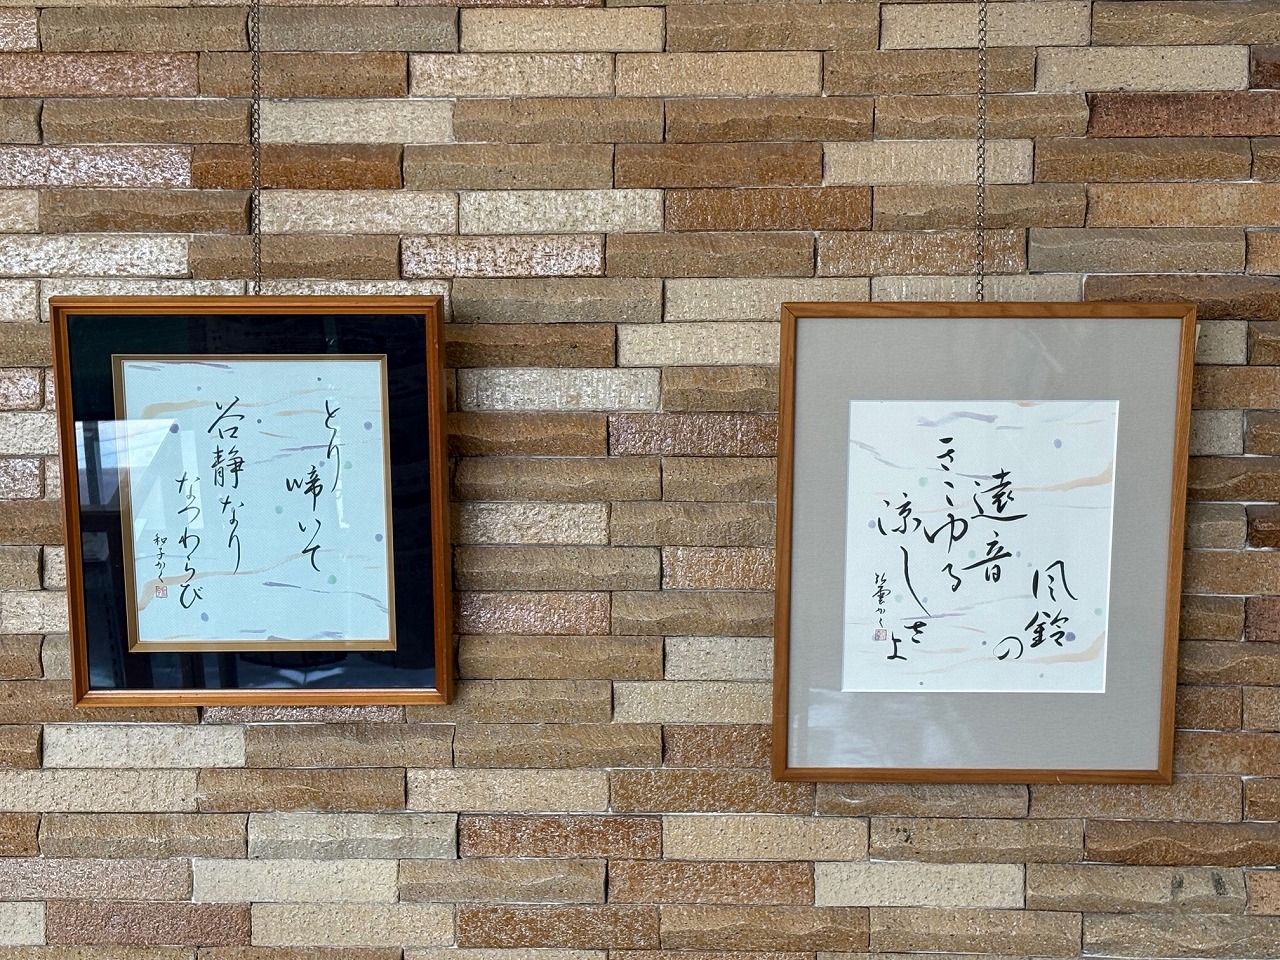 とり啼いて
谷静なり
なつわらび
和子かく
風鈴の
遠音
きこゆる
涼しさよ
かく